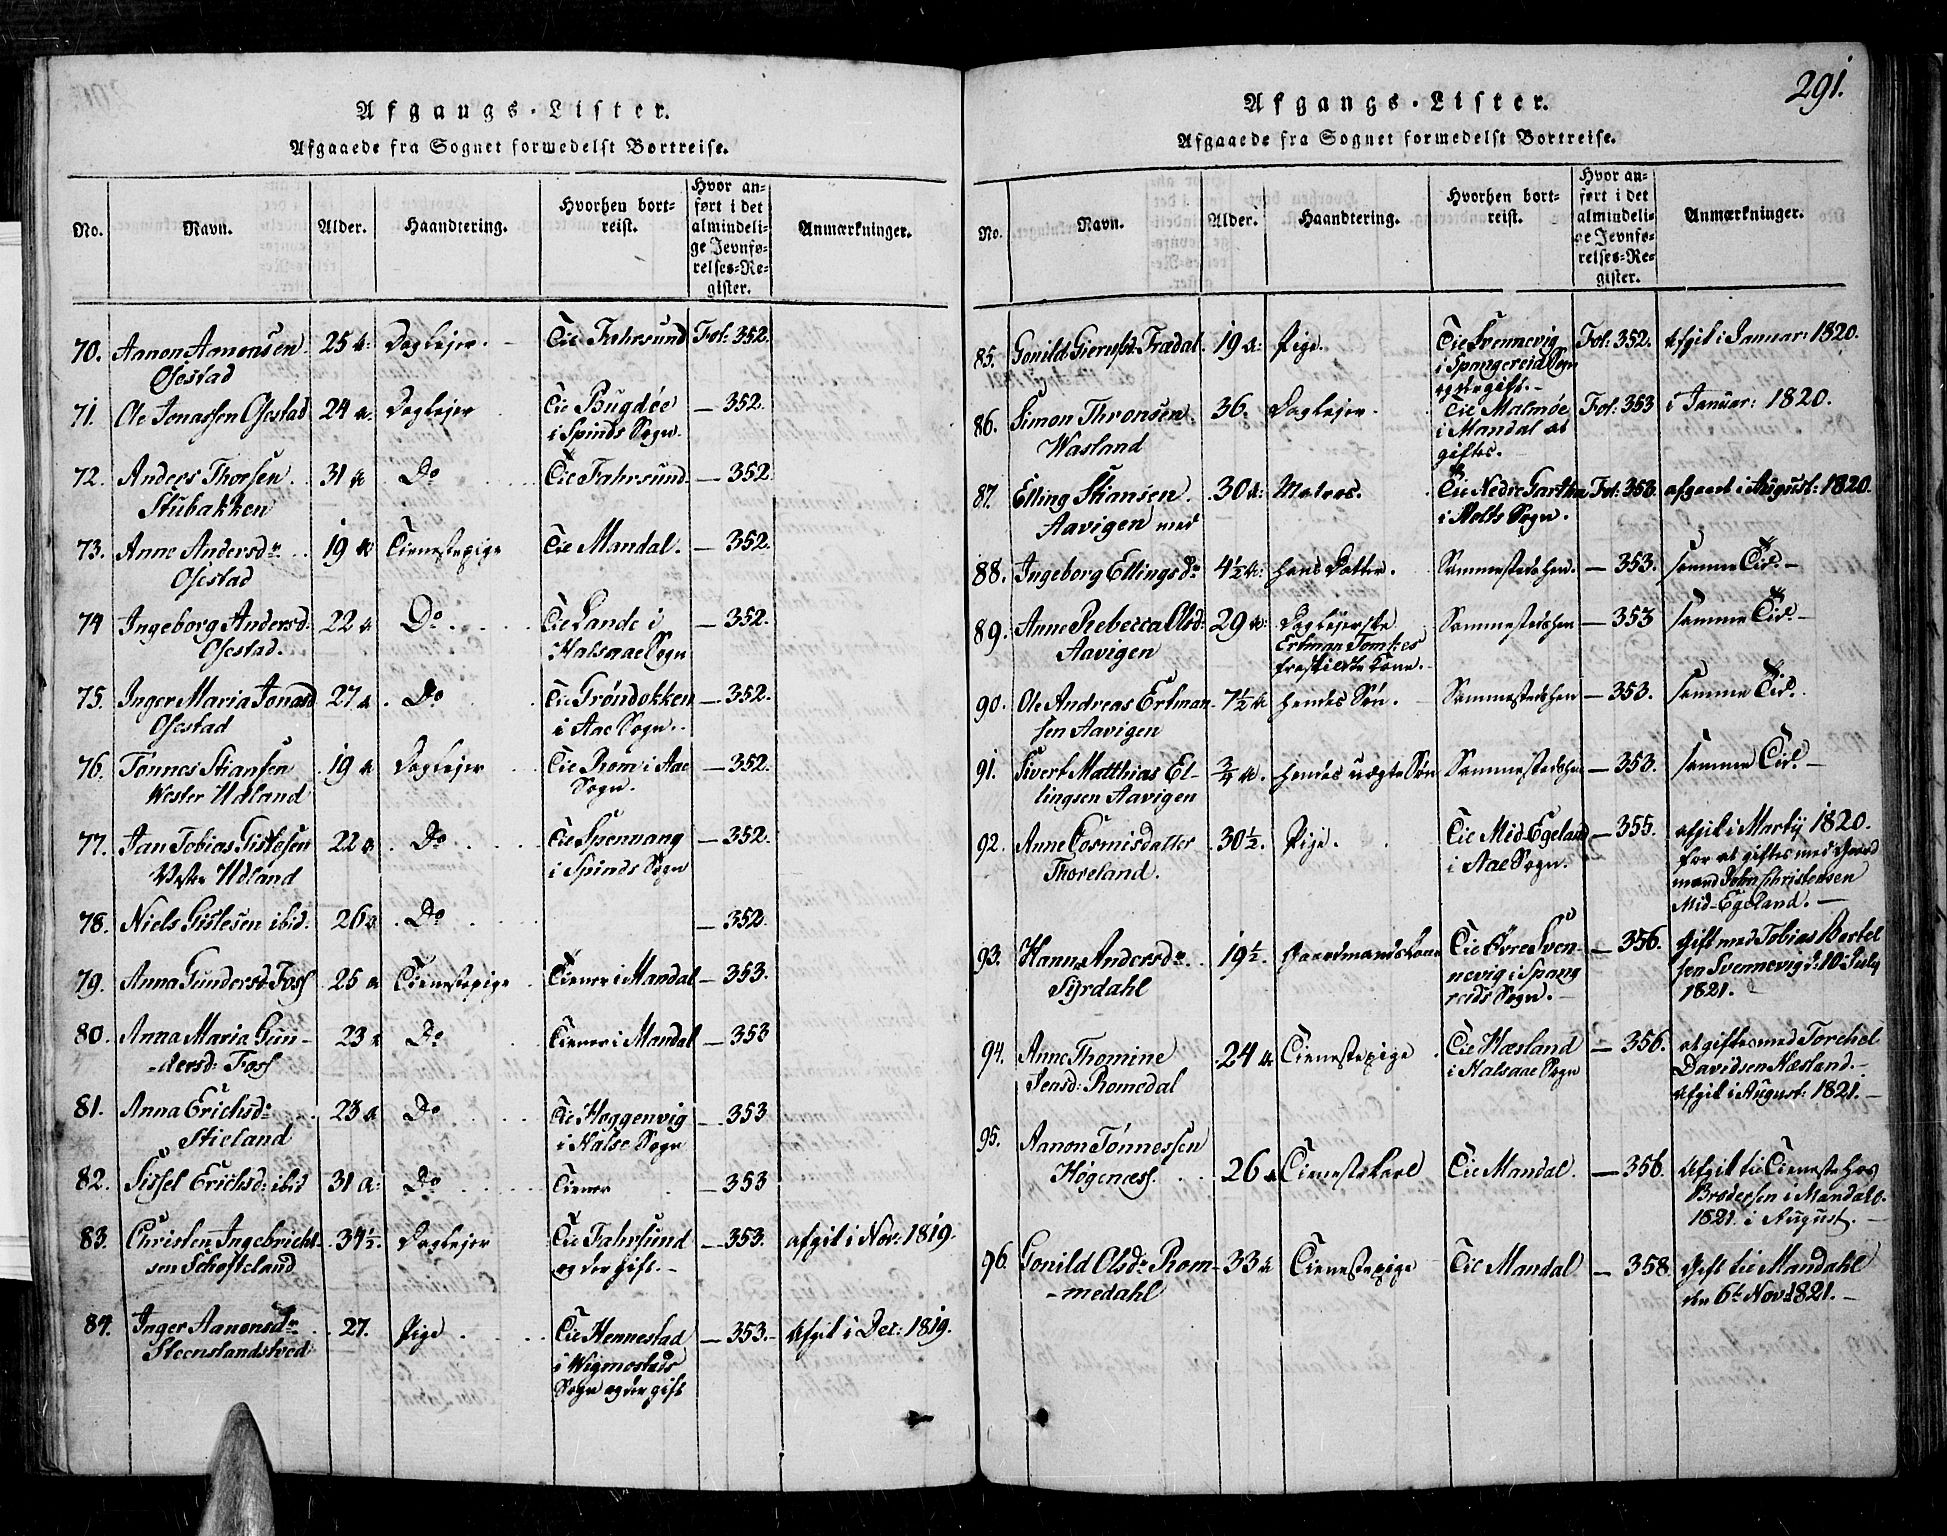 Afgangs-Lister.
Afgaaede fra Sognet formedelst Bortreise.
No. Navn. Alder. Haandtering. Hvorhen bortreist. Hvor anført i det almindelige Jevnførelses-Register. Anmærkninger.
70. Aanon Aanonsen 25 a: Dagleier. Til Fahrsund Fol: 352.
Osestad
71. Ole Jonassen Osestad 24 a. Dagleier Til Bugdøe — 352.
i Spinds Sogn.
72. Anders Thorsen 31 a Do Til Fahrsund — 352.
Stubakken
73. Anne Andersdr 19 a Tienestepige Til Mandal. — 352.
Osestad
74 Ingeborg Andersd: 22 a Do. Til Lande i — 352.
Osestad. Halsaae Sogn
75. Inger Maria Jonasd 27 a. Do Til Grøndokken — 352.
Osestad i Aae Sogn.
76. Tønnes Stiansen 19 a Dagleier Til Rom i Aae — 352.
Wester Udland Sogn.
77. Jan Tobias Gislesen 22 a. Do Til Svennang — 352.
Vester Udland i Spinds Sogn
78. Niels Gislesen ibid. 26 a. Do — 352.
79. Anna Gundersd. Foss 25 a Tienestepige Tiener i Mandal — 353.
80. Anna Maria Gun- 23 a Do Tiener i Mandal — 353
-dersd: Foss
81. Anna Erichsdr 23 a Do Til Hoggenvig — 353
Stieland i Halse Sogn
82. Sissel Erichsd: ibid 31 a: Do Tiener — 353
83. Christen Ingebricht- 34½. Dagleier Til Fahrsund — 353. afgik i Nov: 1819.
sen Schofteland og der gift.—
84. Inger Aanonsdr 27. Pige. Til Hennestad — 353.— Afgik i Dec: 1819.
Steenslandstved i Wigmostads
Sogn og der gift
291.
Afgangs-Lister.
Afgaaede fra Sognet formedelst Bortreise.
No. Navn. Alder. Haandtering. Hvorhen bortreist. Hvor anført i det almindelige Jevnførelses-Register. Anmærkninger.
85. Gonild Giernsd: Frædal. 19 a: Pige. Til Svennevig Fol: 352. Afgik i Januar: 1820.
i Spangereid Sogn
og der gift.—
86. Simon Thronsen 36. Dagleier. Til Malmøe Fol: 353 i Januar: 1820.
Wasland i Mandal at
giftes.—
87. Elling Stiansen 30 a: Matros. Til Nedre Hol: 353. afgaaet i August: 1820.
Aavigen med i Holts Sogn.
88. Ingeborg Ellingsdr 4½ a: hans Datter. Sammestedshen. — 353. samme Tid.—
89. Anne Rebecca Olsd: 29 a: Dagleierske Sammestedshen — 353 samme Tid.—
Aavigen Ertman
fraskildte Kone.—
90. Ole Andreas Ertman- 7½ a hendes Søn. Sammestedshen — 353. samme Tid.
sen Aavigen
91. Sivert Matthias El- ¾ a. hendes uægte Søn Sammestedshen — 353. samme Tid.—
lingsen Aavigen
92. Anne Cosmisdatter 30½. Pige. Til Mid Egeland — 355. afgik i Martij 1820.
Thoreland. i Aae Sogn. for at giftes med Gaard
mand John Christensen
Mid-Egeland.—
93. Hanna Andersdr 19½. Til Øvre Sven- — 356. Gift med Tobias Bertel
Syrdahl nevig i Spang sen Svennevig d: 10 July
reids Sogn.— 1821.—
94. Anne Thomine 24 a Tienestepige Til Hæsland — 356. at giftes med Torchel
Jensd: Romedal i Halsaae Sogn Davidsen Hæsland.—
Afgik i August: 1821.—
95. Aanon Tønnessen
Høgeness. 26 a Tienestekarl Til Mandal. — 356. Afgik til Tieneste hos
Brodersen i Mandal
1821 i August.—
96. Gonild Olsdr Rom- 33 a Tienestepige Til Mandal — 358. Gift til Mandahl
-medahl den 6te Nov: 1821.—